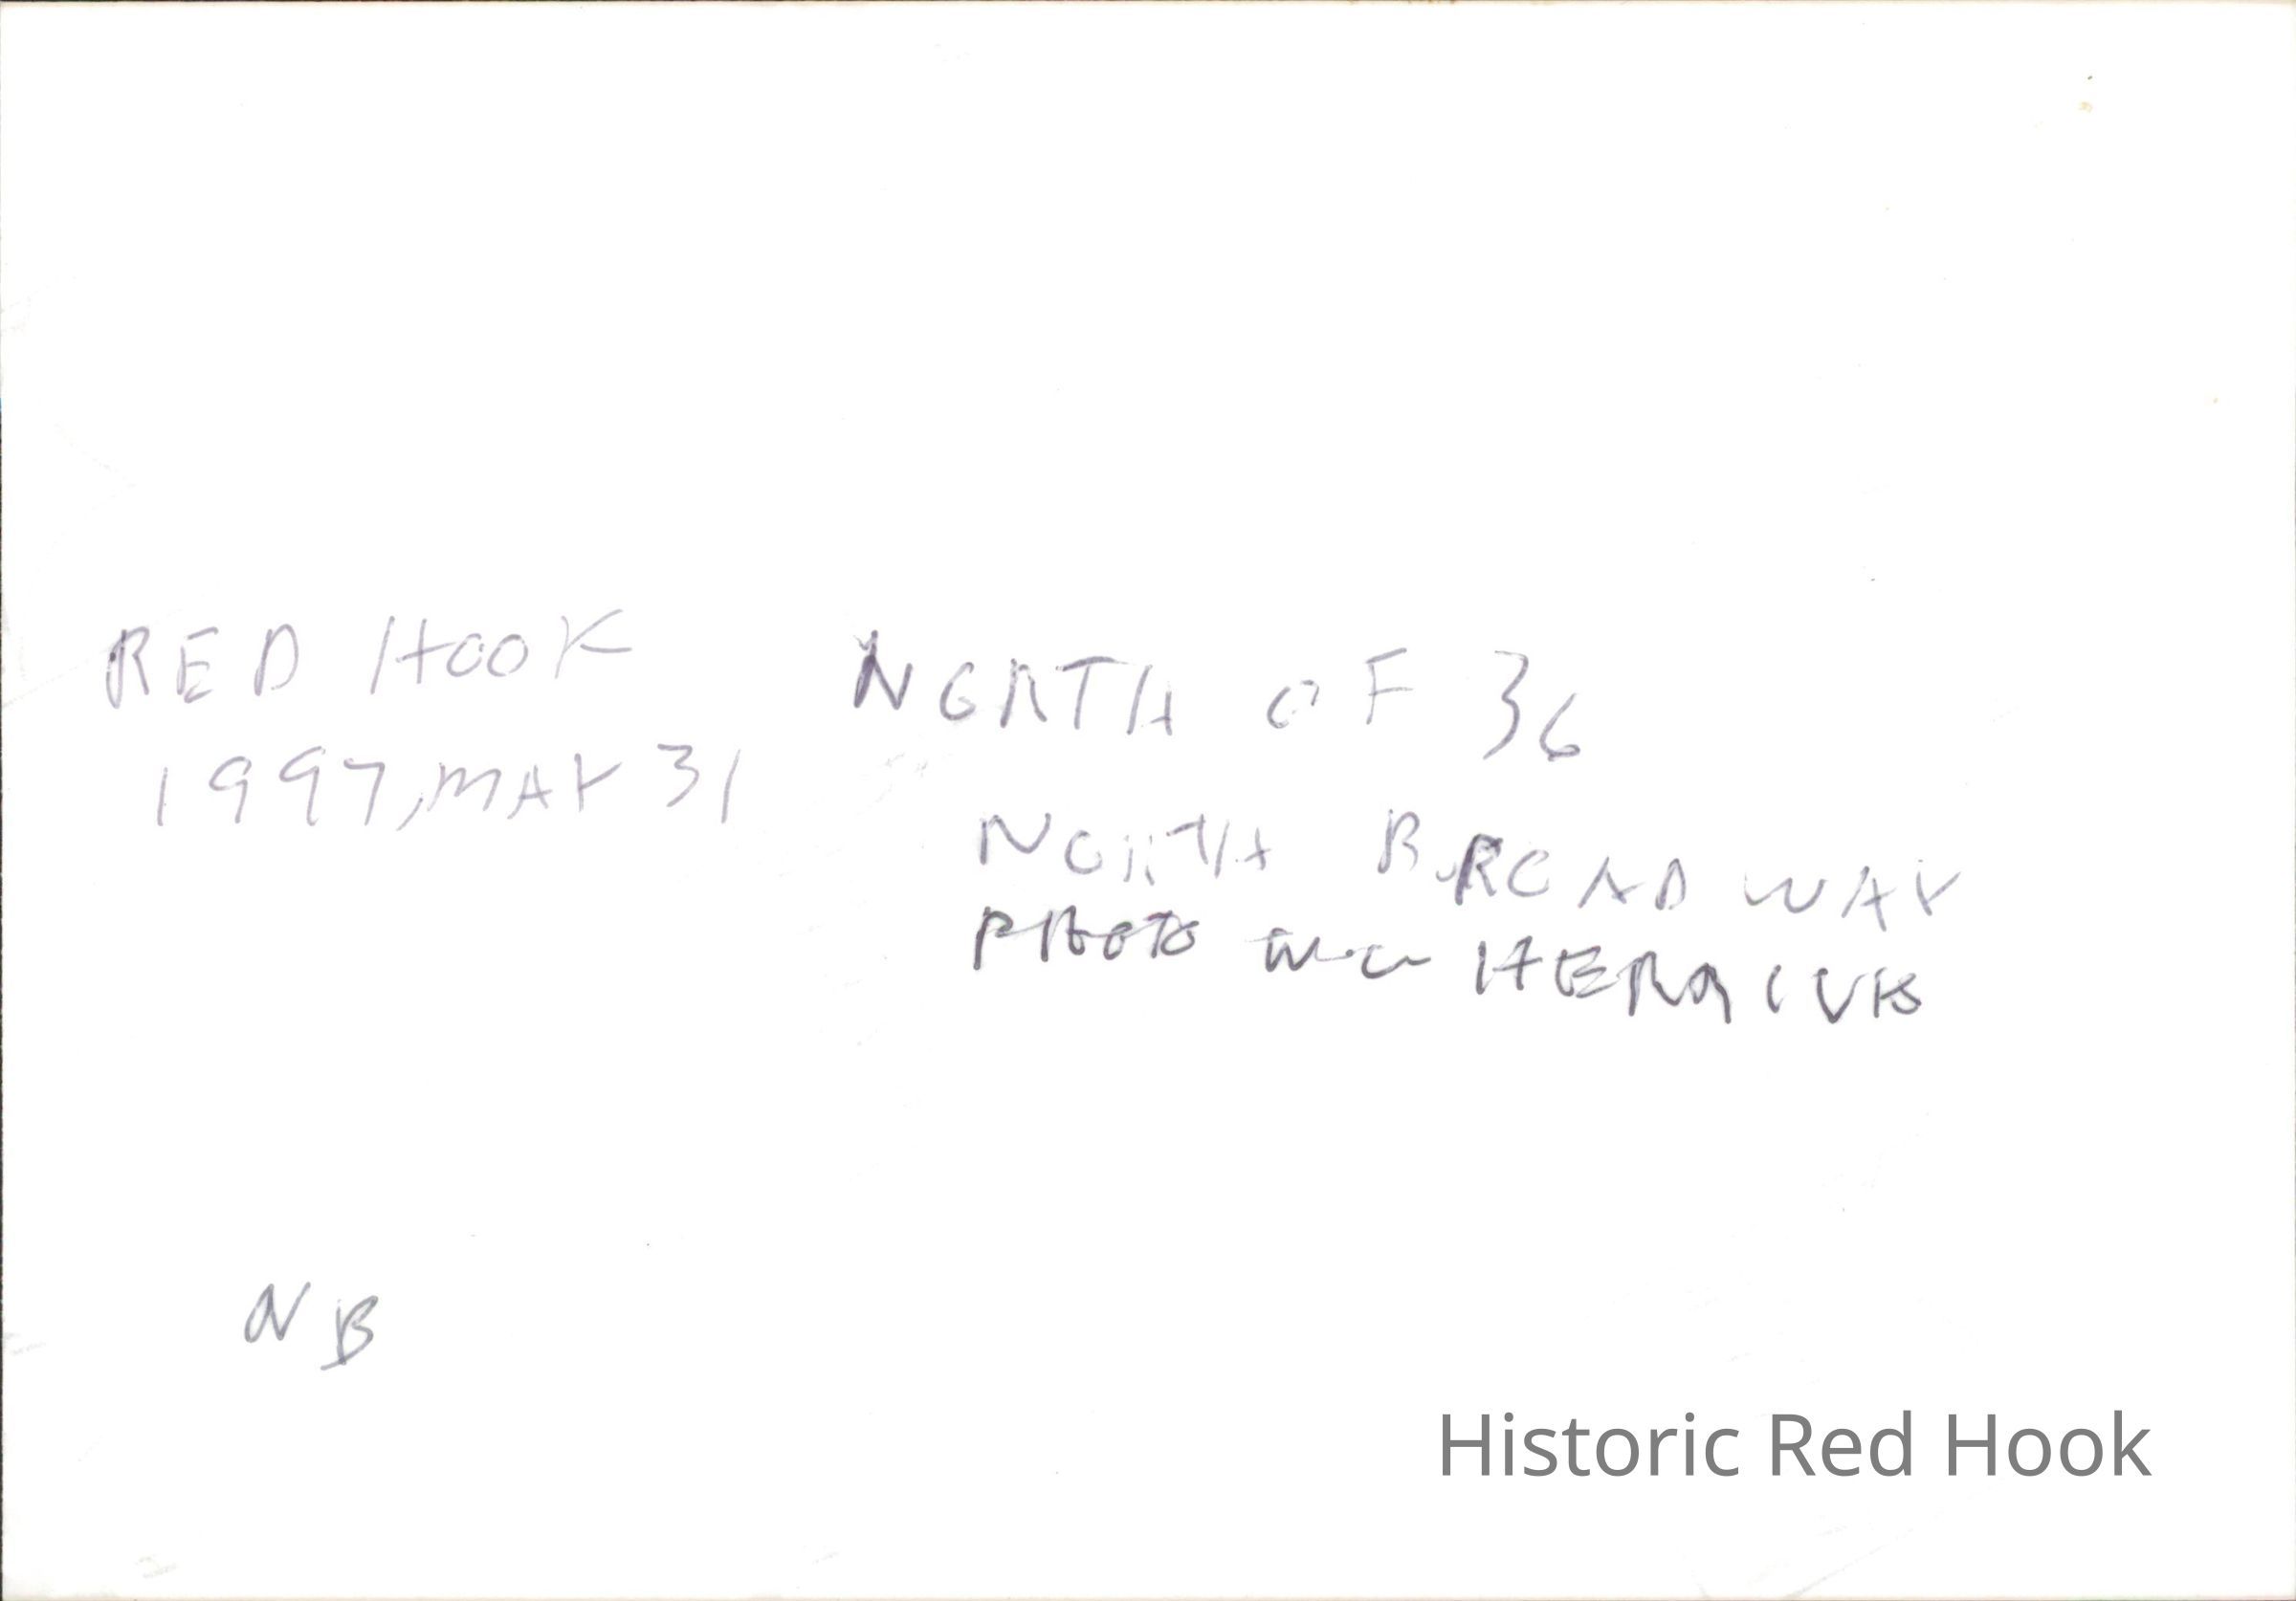 RED HOOK
1997, MAY 31
NORTH OF 36
NORTH BROADWAY
PHOTO
NB
Historic Red Hook